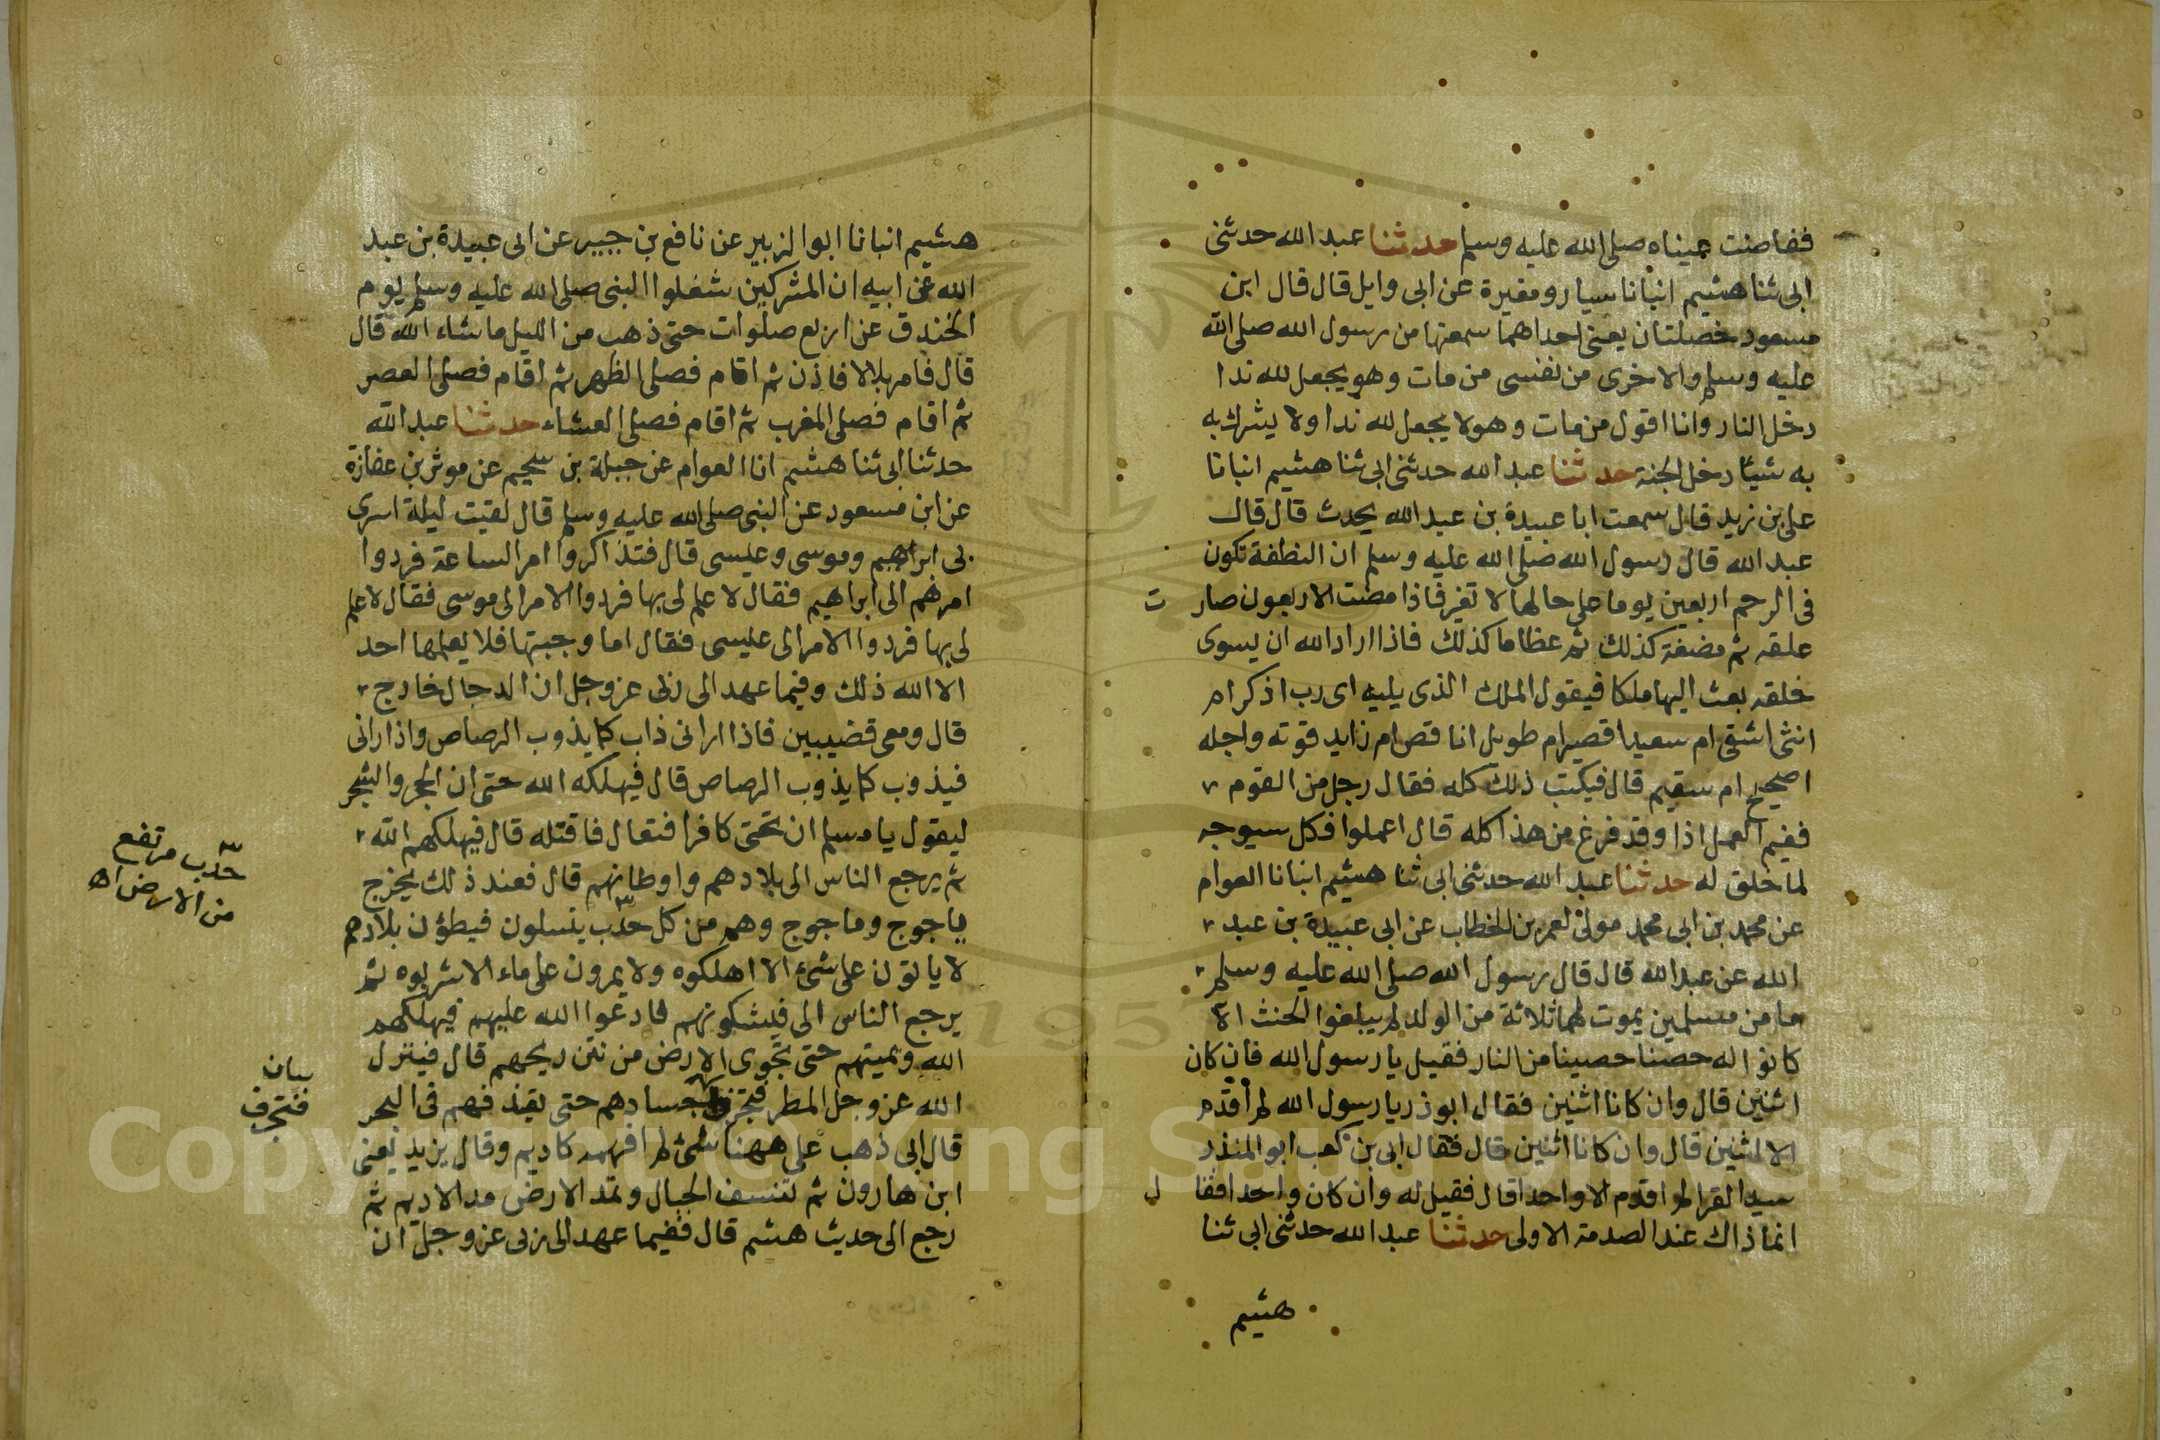 ففاضت عيناه صلى الله عليه وسلم حدثنا عبد الله حدثنى
ابى ثنا هشيم انبانا سيار ومغيرة عن ابى وايل قال قال ابن
مسعود خصلتان يعنى احداهما سمعتها من رسول الله صلى الله
عليه وسلم والاخرى من نفسى من مات وهو يجعل لله ندا
دخل النار وانا اقول من مات وهو لا يجعل لله ندا ولا يشرك به
به شيئا دخل الجنة حدثنا عبد الله حدثنى ابى ثنا هشيم انبانا
على بن زيد قال سمعت ابا عبيدة بن عبد الله يحدث قال قال
عبد الله قال رسول الله صلى الله عليه وسلم ان النطفة تكون
فى الرحم اربعين يوما على حالها لا تغير فاذا مضت الاربعون صار
ت
علقه ثم مضغة كذلك ثم عظاما كذلك فاذا اراد الله ان يسوى
خلقه بعث اليها ملكا فيقول الملك الذى يليه اى رب اذكر ام
انثى اشقى ام سعيد اقصير ام طويل اناقص ام زايد قوته واجله
اصحيح ام سقيم قال فيكتب ذلك كله فقال رجل من القوم
ففيم العمل اذا وقد فرغ من هذا كله قال اعملوا فكل سيوجه
لما خلق له حدثنا عبد الله حدثنى ابى ثنا هشيم انبانا العوام
عن محمد بن ابى محمد مولى لعمر بن الخطاب عن ابى عبيدة بن عبد
الله عن عبد الله قال قال رسول الله صلى الله عليه وسلم
ما من مسلمين يموت لهما ثلاثة من الولد لم يبلغوا الحنث الا
كانوا له حصنا حصينا من النار فقيل يا رسول الله فان كان
اثنين قال وان كانا اثنين فقال ابو ذر يا رسول الله لم اقدم
الا اثنين قال وان كانا اثنين قال فقال ابى بن كعب ابو المنذر
سيد القرا لم اقدم الا واحدا قال فقيل له وان كان واحدا فقا
ل
انما ذاك عند الصدمة الاولى حدثنا عبد الله حدثنى ابى ثنا
هشيم
هشيم انبانا ابو الزبير عن نافع بن جبير عن ابى عبيدة بن عبد
الله عن ابيه ان المشركين شغلوا النبى صلى الله عليه وسلم يوم
الخندق عن اربع صلوات حتى ذهب من الليل ما شاء الله قال
قال فامر بلالا فاذن ثم اقام فصلى الظهر ثم اقام فصلى العصر
ثم اقام فصلى المغرب ثم اقام فصلى العشاء حدثنا عبد الله
حدثنا ابى ثنا هشيم انا العوام عن جبلة بن سحيم عن موثر بن عفازة
عن ابن مسعود عن النبى صلى الله عليه وسلم قال لقيت ليلة اسرى
بى ابراهيم وموسى وعيسى قال فتذاكروا امر الساعة فردوا
امرهم الى ابراهيم فقال لا علم لى بها فردوا الامر الى موسى فقال لا علم
لى بها فردوا الامر الى عيسى فقال اما وجبتها فلا يعلمها احد
الا الله ذلك وفيما عهد الى ربى عز وجل ان الدجال خارج
قال ومعى قضيبين فاذا رانى ذاب كما يذوب الرصاص واذا رانى
فيذوب كما يذوب الرصاص قال فيهلكه الله حتى ان الحجر والشجر
ليقول يا مسلم ان تحتى كافرا فتعال فاقتله قال فيهلكهم الله
ثم يرجع الناس الى بلادهم واوطانهم قال فعند ذلك يخرج
ياجوج وماجوج وهم من كل حدب ينسلون فيطؤن بلادهم
لا ياتون على شئ الا اهلكوه ولا يمرون على ماء الا شربوه ثم
يرجع الناس الى فيشكونهم فادعوا الله عليهم فيهلكهم
الله ويميتهم حتى تجوى الارض من نتن ريحهم قال فينزل
الله عز وجل المطر فتجرف اجسادهم حتى يقذفهم فى البحر
قال ابى ذهب على ههنا شئ لم افهمه كاديم وقال يزيد يعنى
ابن هارون ثم تنسف الجبال وتمد الارض مد الاديم ثم
رجع الى حديث هشيم قال ففيما عهد الى ربى عز وجل ان
حدب مرتفع
من الارض اه
بيان
فتجرف
Copyright © King Saud University